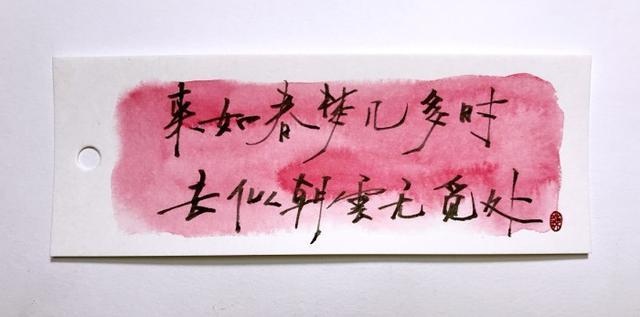 来如春梦几多时
去似朝雲无觅处